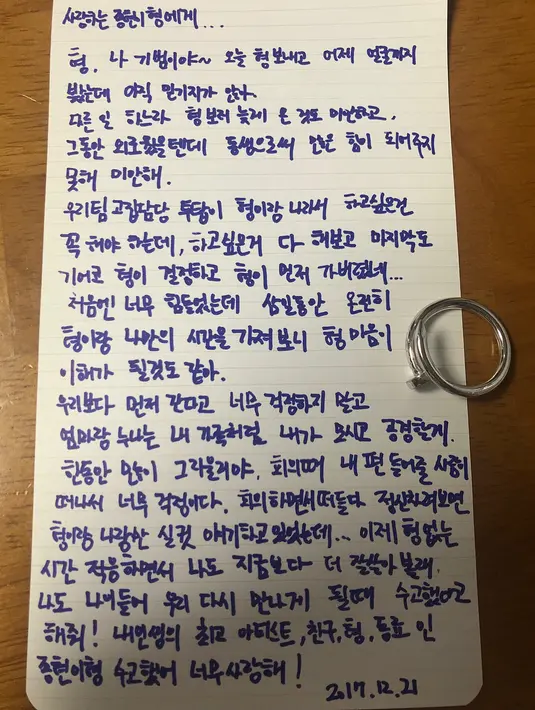 사랑하는 종현이형에게...
형. 나 기범이야~ 오늘 형보내고 어제 얼굴까지
봤는데 아직 믿기지가 않다.
다른 일 하느라 형보러 늦게 온 것도 미안하고,
그동안 외로웠을텐데 동생으로써 많은 힘이 되어주지
못해 미안해.
우리팀 고집담당 투탑이 형이랑 나라서 하고싶은건
꼭 해야 하는데, 하고싶은거 다 해보고 마지막도
기어코 형이 결정하고 형이 먼저 가버렸네...
처음엔 너무 힘들었는데 삼일동안 온전히
형이랑 나만의 시간을 가져보니 형 마음이
이해가 될것도 같아.
우리보다 먼저 간다고 너무 걱정하지 말고
엄마랑 누나는 내 가족처럼 내가 모시고 공경할게.
한동안 많이 그리울거야, 회의때 내 편 들어줄 사람이
떠나서 너무 걱정이다. 회의하면서 떠들다 정신차려보면
형이랑 나랑만 실컷 얘기하고 있었는데... 이제 형없는
시간 적응하면서 나도 지금보다 더 잘살아 볼래.
나도 나이들어 우리 다시 만나게 될때 수고했다고
해줘! 내인생의 최고 아티스트, 친구, 형, 동료 인
종현이형 수고했어 너무 사랑해!
2017.12.21